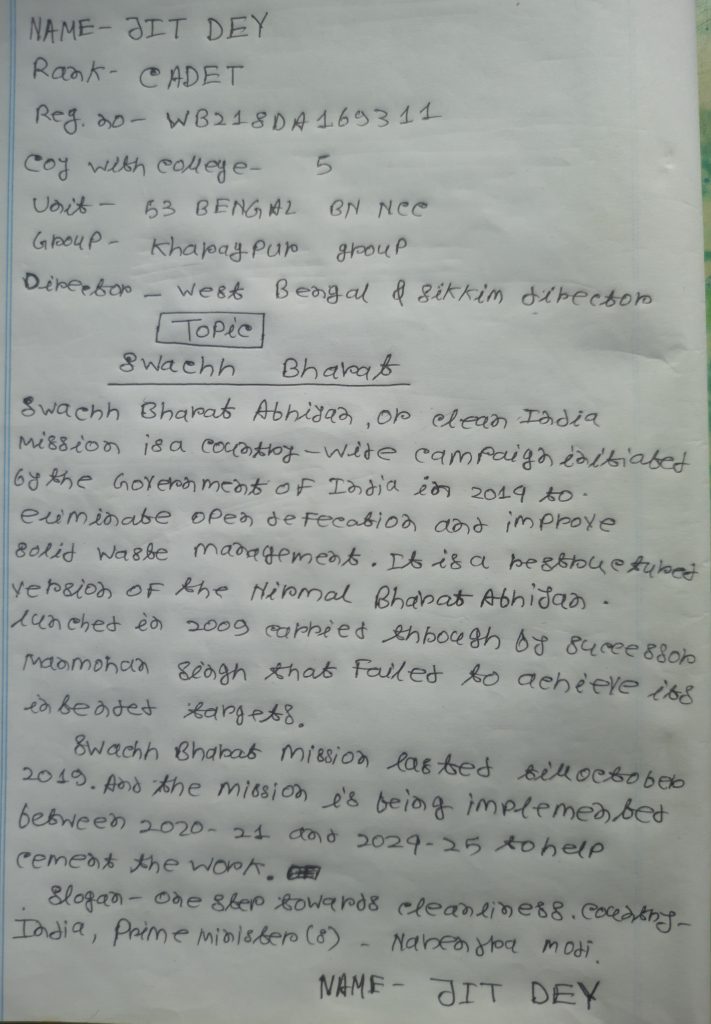 NAME- JIT DEY
Rank- CADET
Reg. no- WB218DA169311
Coy with college- 5
Unit- 53 BENGAL BN NCC
Group- Kharagpur group
Director- West Bengal & Sikkim director
Topic
Swachh Bharat
Swachh Bharat Abhijan, or clean India
Mission is a country-wide campaign initiated
by the Government of India in 2014 to
eliminate open defecation and improve
solid waste management. It is a restructured
version of the Nirmal Bharat Abhijan.
lunched in 2009 carried through by successor
Manmohan Singh that failed to achieve its
intended targets.
Swachh Bharat Mission lasted till october
2019. And the mission is being implemented
between 2020-21 and 2024-25 to help
cement the work.
Slogan- one step towards cleanliness. country-
India, Prime minister(s) - Narendra modi.
NAME- JIT DEY